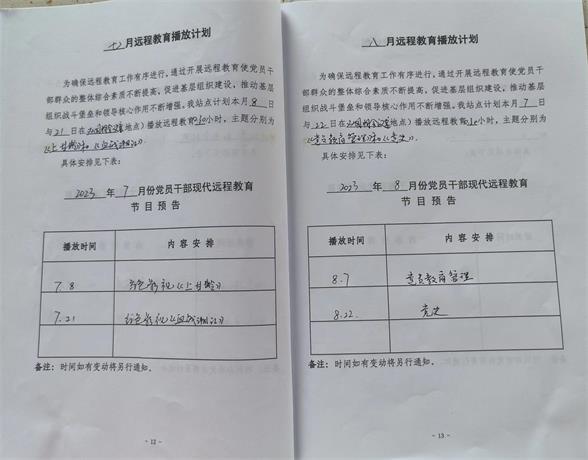 七月远程教育播放计划
为确保远程教育工作有序进行，通过开展远程教育使党员干
部群众的整体综合素质不断提高，促进基层组织建设，推动基层
组织战斗堡垒和领导核心作用不断增强。我站点计划本月8日
与21日在地点）播放远程教育10小时，主题分别为
《上甘岭》和《血战湘江》
具体安排见下表：
2023年7月份党员干部现代远程教育
节目预告
播放时间 内容安排
7.8 红色影视《上甘岭》
7.21 红色影视《血战湘江》
备注：时间如有变动将另行通知。
- 12 -
八月远程教育播放计划
为确保远程教育工作有序进行，通过开展远程教育使党员干
部群众的整体综合素质不断提高，促进基层组织建设，推动基层
组织战斗堡垒和领导核心作用不断增强。我站点计划本月7日
与22日在地点）播放远程教育10小时，主题分别为
《党员教育管理》和《党史》
具体安排见下表：
2023年8月份党员干部现代远程教育
节目预告
播放时间 内容安排
8.7 党员教育管理
8.22. 党史
备注：时间如有变动将另行通知。
- 13 -